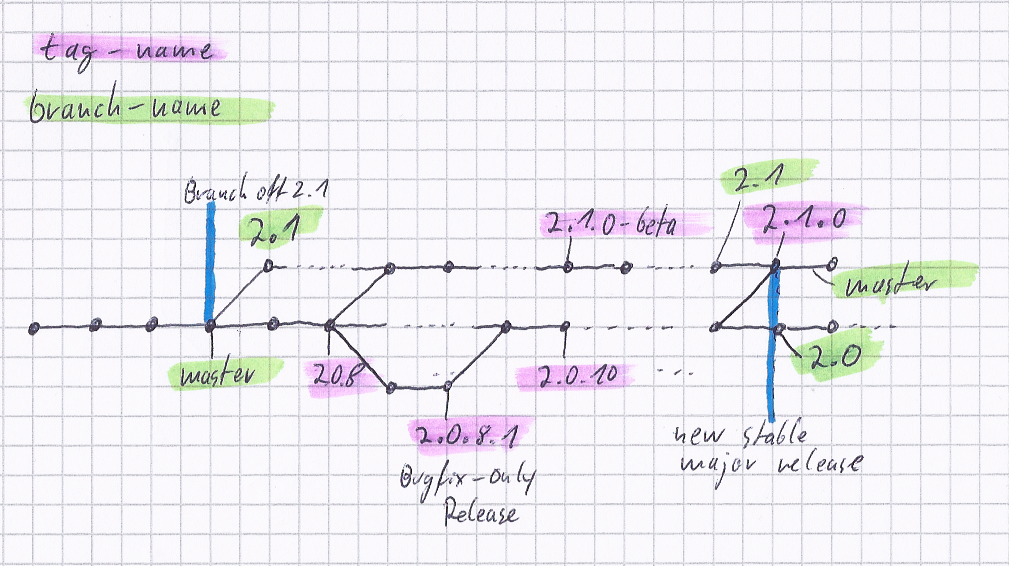 tag-name
branch-name
Branch off 2.1
2.1
2.1.0-beta
2.1
2.1.0
master
master
2.0.8
2.0.10
2.0
2.0.8.1
Bugfix-only
Release
new stable
major release